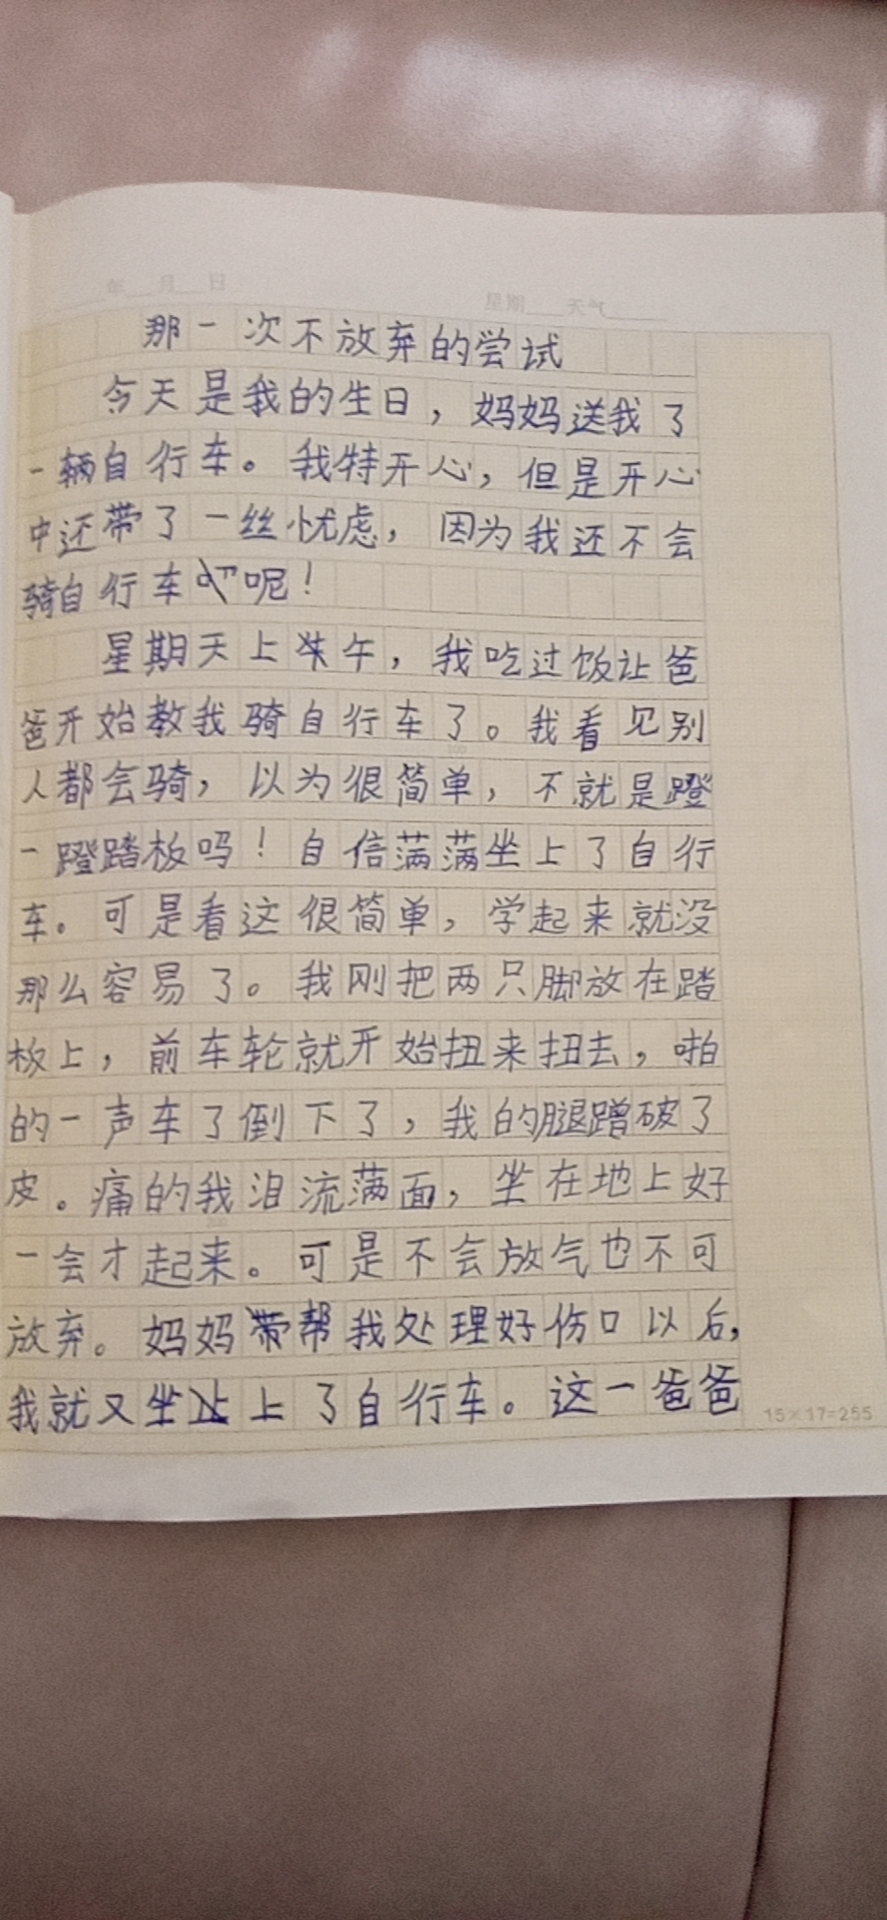 年 月 日 星期 天气
那一次不放弃的尝试
今天是我的生日，妈妈送我了
一辆自行车。我特开心，但是开心
中还带了一丝忧虑，因为我还不会
骑自行车呢！
星期天上午，我吃过饭让爸
爸开始教我骑自行车了。我看见别
人都会骑，以为很简单，不就是蹬
一蹬踏板吗！自信满满坐上了自行
车。可是看这很简单，学起来就没
那么容易了。我刚把两只脚放在踏
板上，前车轮就开始扭来扭去，啪
的一声车了倒下了，我的腿蹭破了
皮。痛的我泪流满面，坐在地上好
一会才起来。可是不会放气也不可
放弃。妈妈帮我处理好伤口以后，
我就又坐上了自行车。这一爸爸
15×17=255